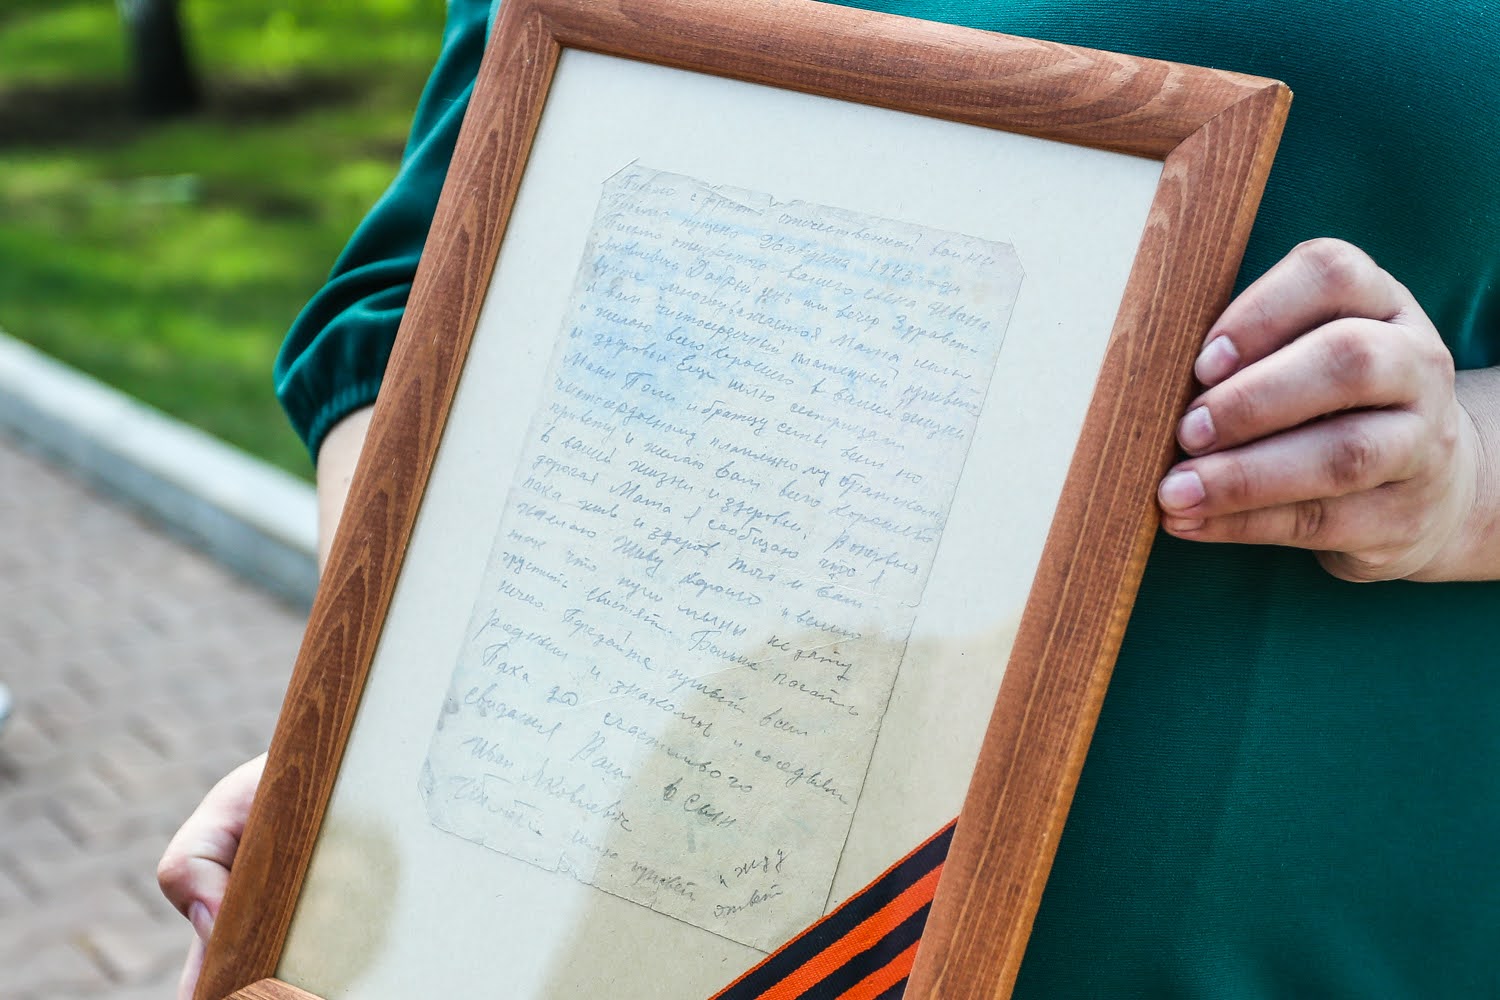 Письмо с фронта отечественной войны
Письмо пущено 1943 года
Письмо от вашего сына Ивана
Яковлевича Добрый день или вечер Здравст-
вуйте многоуважаемая Мама шлю
я вам чистосердечный пламенный привет
и желаю всего хорошего в вашей жизни
и здоровьи Еще шлю сестрицам
Мани Поли и братцу вам по
чистосердечному пламенному братскому
привету и желаю Вам всего хорошего
в вашей жизни и здоровьи. Впервых
дорогая Мама я сообщаю что я
пака жив и здоров того и Вам
желаю Живу хорошо
тоже что пули мины не дают
грустить Свистят. Больше писать
нечего. Передайте привет всем
родным и знакомым и соседям
Пака до счастливого
свидания Ваш сын
Иван Яковлевич
шлю привет и жду
ответ